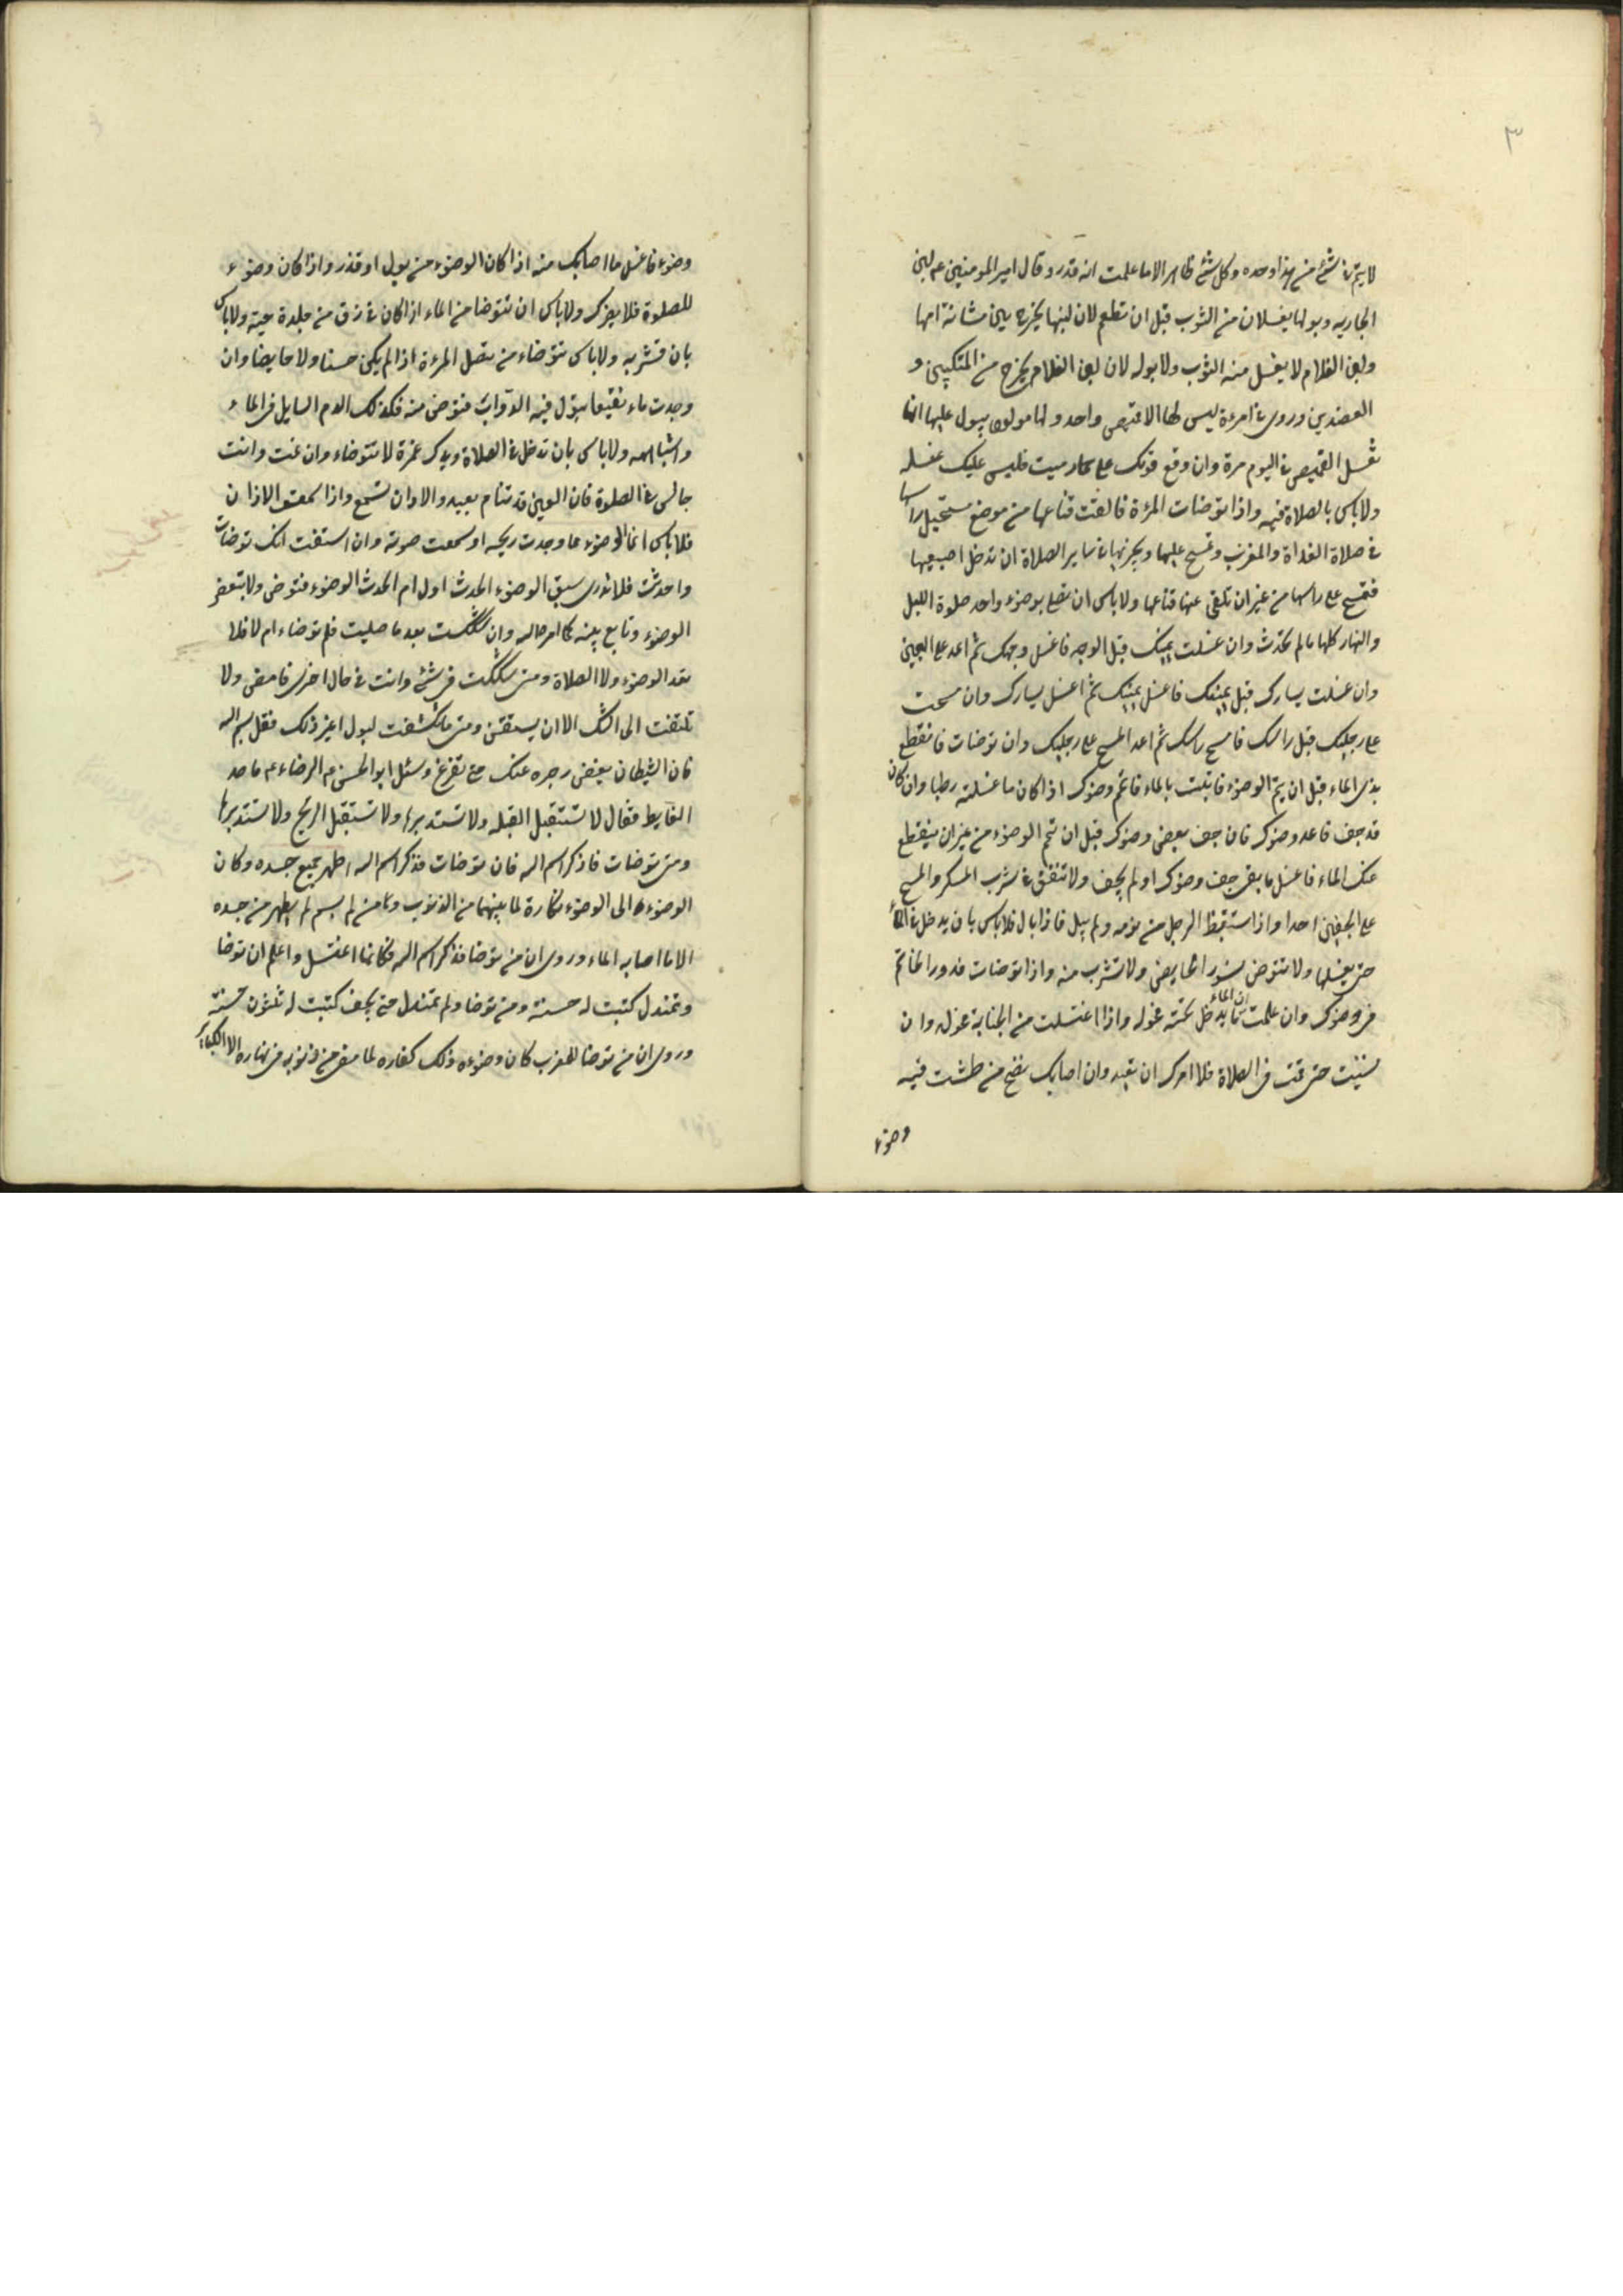 ٣
لا يتم في شئ من هذا وحده وكل شئ طاهر الا ما علمت انه قذر وقال امير المومنين عم لبن
الجاريه وبولها يغسلان من الثوب قبل ان تطعم لان لبنها يخرج من مثانة امها
ولبن الغلام لا يغسل منه الثوب ولا بوله لان لبن الغلام يخرج من المنكبين و
العضدين وروى في امرءة ليس لها الا قميص واحد ولها مولود يبول عليها انها
تغسل القميص في اليوم مرة وان وقع ثوبك على حمار ميت فليس عليك غسله
ولا باس بالصلاة فيه واذا توضات المرءة فالقت قناعها من موضع مسح راسها
في صلاة الغداة والمغرب وتمسح عليها ويجزيها في ساير الصلاة ان تدخل اصبعيها
فتمسح على راسها من غير ان تلقى عنها قناعها ولا باس ان تصلى بوضوء واحد صلوة الليل
والنهار كلها ما لم تحدث وان غسلت يمينك قبل الوجه فاغسل وجهك ثم اعد على اليمين
وان غسلت يسارك قبل يمينك فاغسل يمينك ثم اغسل يسارك وان مسحت
على رجليك قبل راسك فامسح راسك ثم اعد المسح على رجليك وان توضات فانقطع
بك الماء قبل ان يتم الوضوء فاتيت بالماء فاتم وضوك اذا كان ما غسلته رطبا وان كان
قد جف فاعد وضوك فان جف بعض وضوك قبل ان تتم الوضوء من غير ان ينقطع
عنك الماء فاغسل ما بقى جف وضوك او لم يجف ولا تتق في شرب المسكر والمسح
على الخفين احدا واذا استيقظ الرجل من نومه ولم يبل فاذا بال فلا باس بان يدخل في الماء
حتى يغسلها ولا تتوض بسور الحايض ولا تشرب منه واذا توضات فدور الخاتم
فى وضوك وان علمت ان الماء لا يدخل تحته فحوله واذا اغتسلت من الجنابة فحوله وان
نسيت حتى قمت فى الصلاة فلا امرك ان تعيد وان اصابك نضح من طشت فيه
وضوء
وضوء فاغسل ما اصابك منه اذا كان الوضوء من بول او قذر واذا كان وضوء
للصلوة فلا يضرك ولا باس ان تتوضا من الماء اذا كان في زق من جلدة ميتة ولا باس
بان تشربه ولا باس تتوضاء من فضل المرءة اذا لم يكن جنبا ولا حايضا وان
وجدت ماء نقيعا يبول فيه الدواب فتوض منه فكذلك الدم السايل فى الماء
واشباهه ولا باس بان تدخل في الصلاة ويدك غمرة لا تتوضاء وان نمت وانت
جالس في الصلوة فان العين قد تنام بعبد والاذن تسمع واذا سمعت الاذان
فلا باس انما الوضوء مما وجدت ريحه او سمعت صوته وان استيقنت انك توضات
واحدثت فلا تدرى سبق الوضوء الحدث اول ام الحدث الوضوء فتوض ولا تبعض
الوضوء وتابع بينه كما امر الله وان شككت بعد ما صليت فلم توضاء ام لا فلا
تعد الوضوء ولا الصلاة ومتى شككت فى شئ وانت في حال اخرى فامض ولا
تلتفت الى الشك الا ان يستيقن ومتى ما تكشفت لبول او غير ذلك فقل بسم الله
فان الشيطان يغض بصره عنك حتى تفرغ وسئل ابو الحسن الرضاء عم ما حد
الغايط فقال لا تستقبل القبله ولا تستدبرها ولا تستقبل الريح ولا تستدبرها
ومتى توضات فاذكر اسم الله فان توضات فذكر اسم الله اطهر جميع جسده وكان
الوضوء الى الوضوء كفارة لما بينهما من الذنوب ومن لم يسم لم يطهر من جسده
الا ما اصابه الماء وروى ان من توضا فذكر اسم الله فكانما اغتسل واعلم ان توضا
وتمندل كتبت له حسنة ومن توضا ولم يتمندل حتى يجف كتبت له ثلثون حسنة
وروى ان من توضا للمغرب كان وضوءه ذلك كفاره لما مضى من ذنوبه فى نهاره الا الكباير